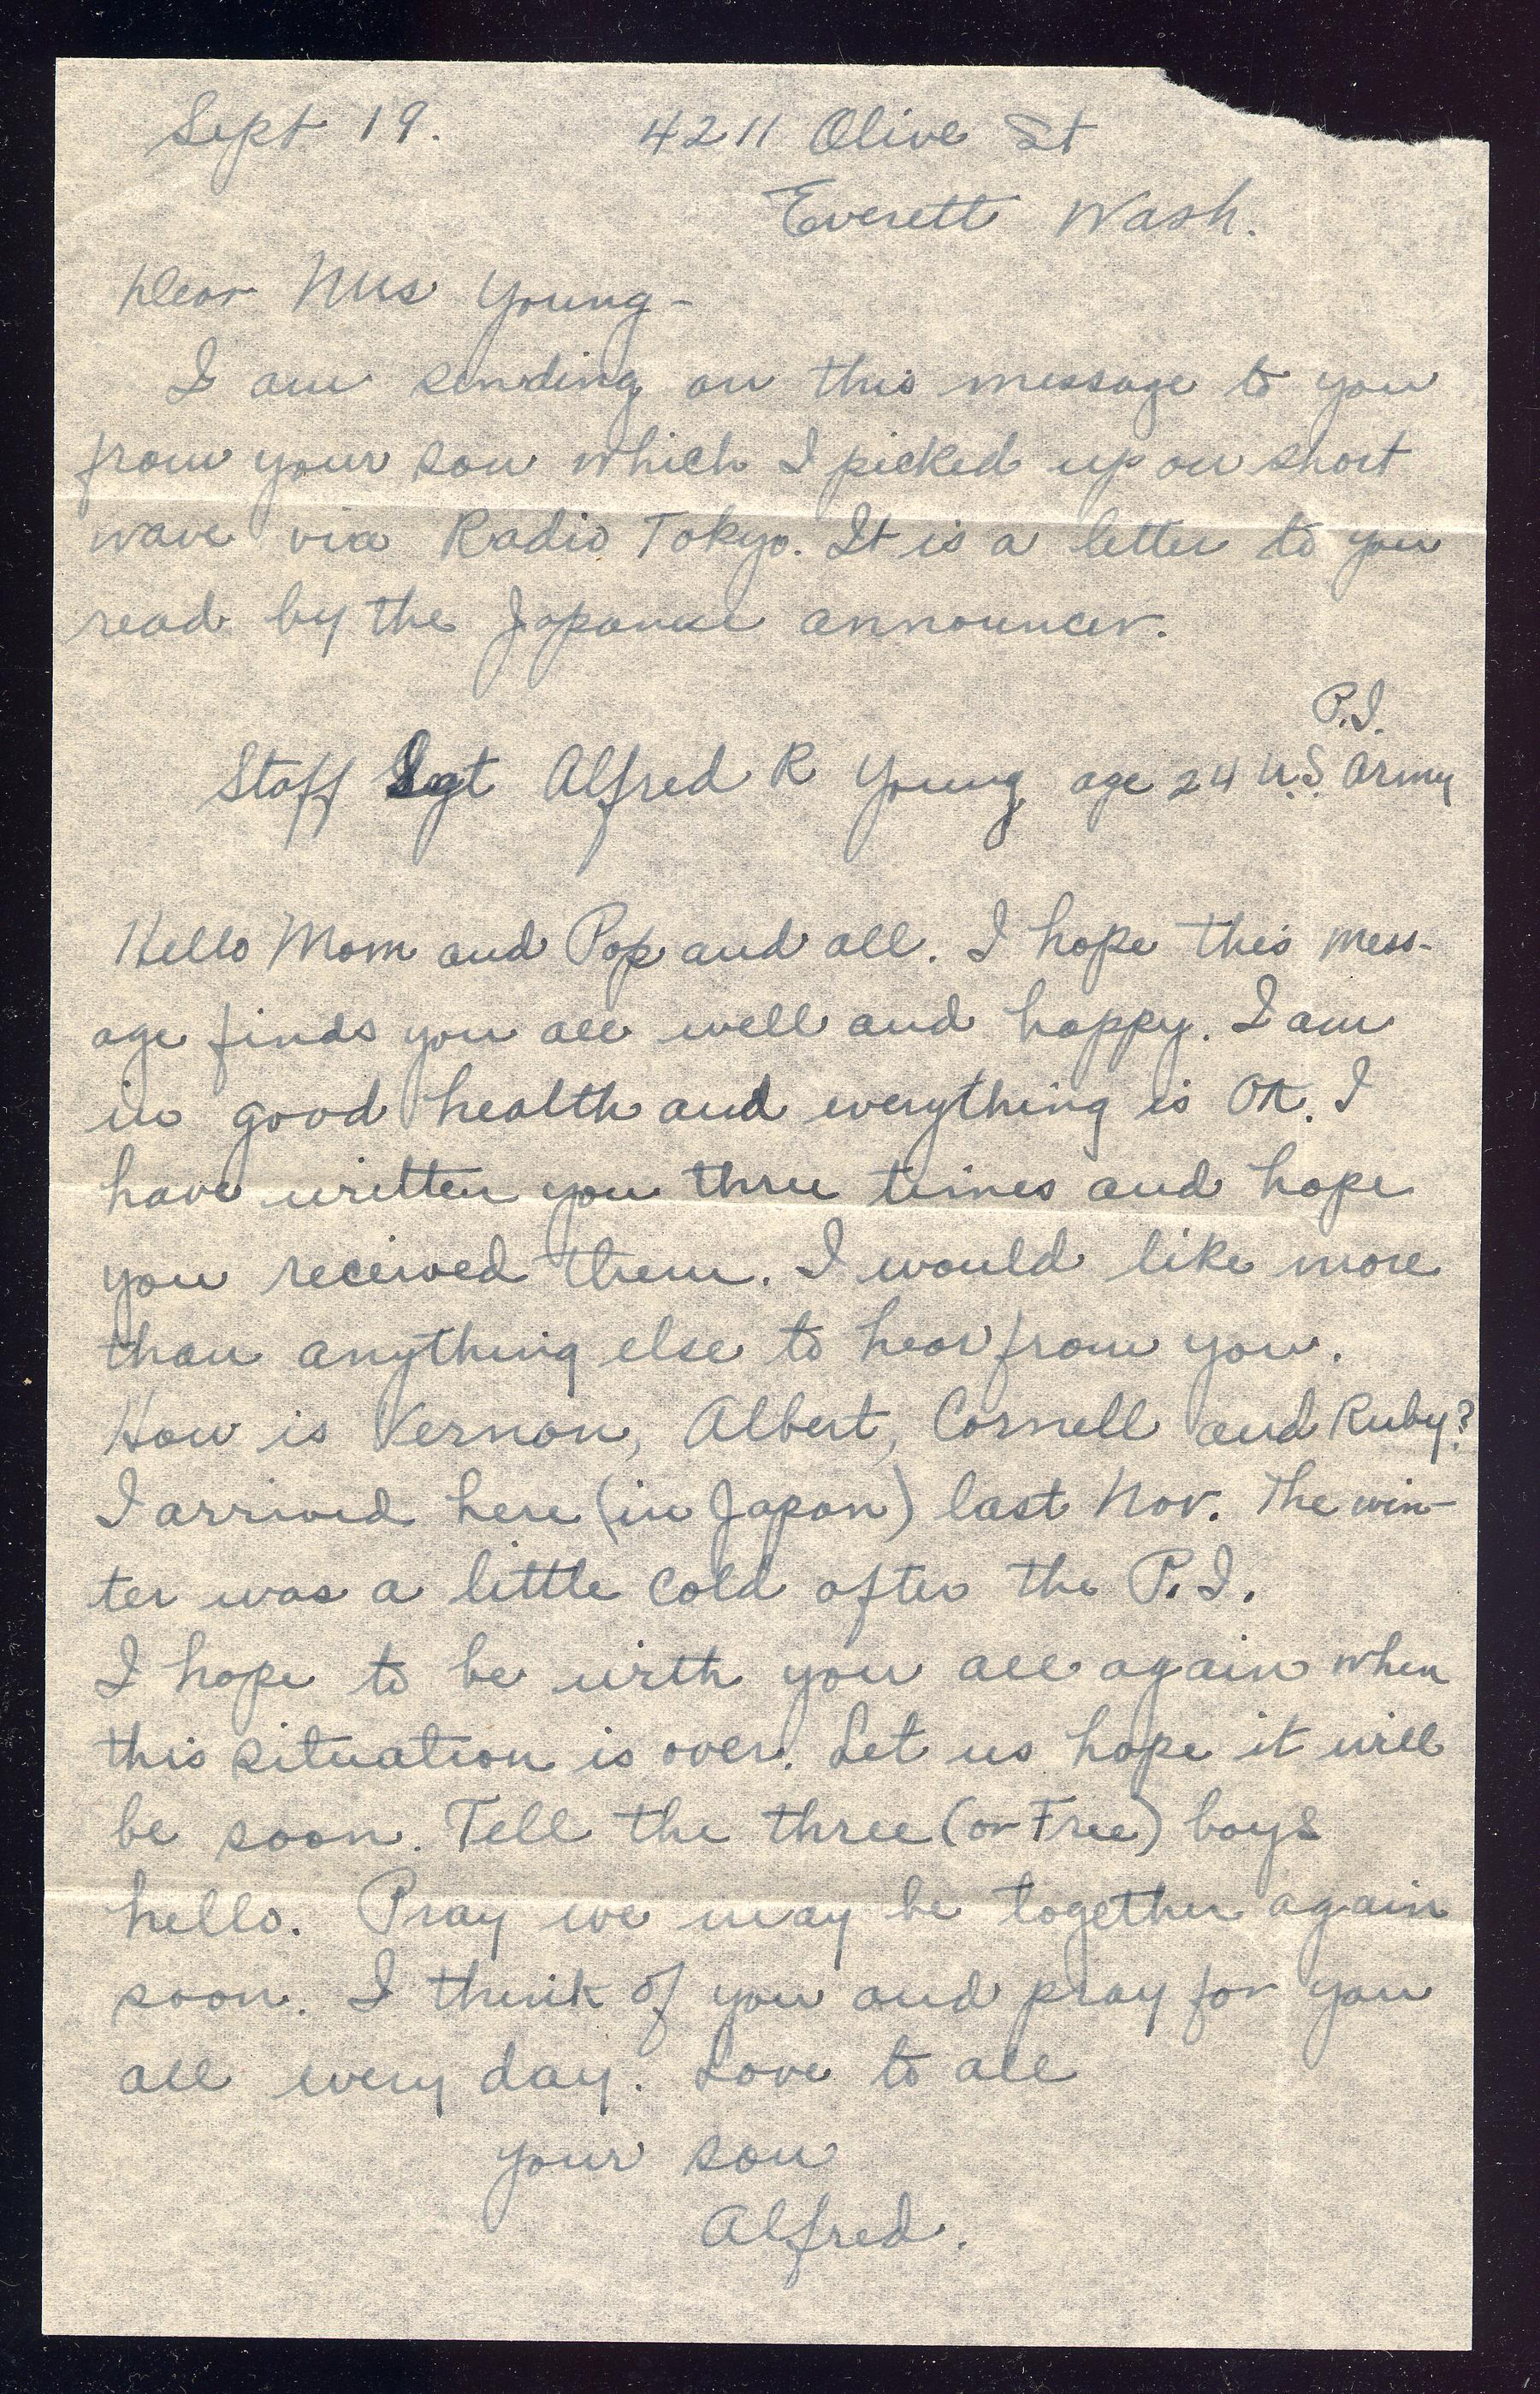 Sept 19. 4211 Olive St
Everett Wash.
Dear Mrs Young -
I am sending on this message to you
from your son which I picked up on short
wave via Radio Tokyo. It is a letter to you
read by the Japanese announcer.
P.I.
Staff Sgt Alfred R Young age 24 U.S. Army
Hello Mom and Pop and all. I hope this mess-
age finds you all well and happy. I am
in good health and everything is OK. I
have written you three times and hope
you received them. I would like more
than anything else to hear from you.
How is Vernon, Albert, Cornell and Ruby?
I arrived here (in Japan) last Nov. The win-
ter was a little cold after the P.I.
I hope to be with you all again when
this situation is over. Let us hope it will
be soon. Tell the three (or Free) boys
hello. Pray we may be together again
soon. I think of you and pray for you
all every day. Love to all
your son
Alfred.